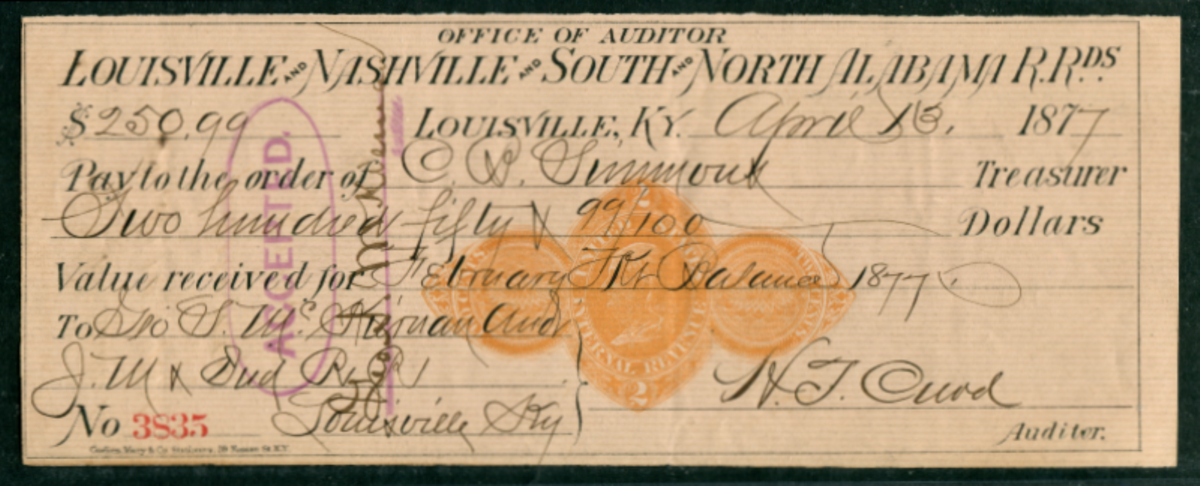 OFFICE OF AUDITOR
LOUISVILLE AND NASHVILLE AND SOUTH AND NORTH ALABAMA R.RDS.
$250.99 LOUISVILLE, KY. April 13. 1877
Pay to the order of C. Simmons Treasurer
Two hundred fifty & 99/100 Dollars
Value received for February Frt Balance 1877.
To S. Mc Kiernan Aud
J. M & Ind R.R
No 3835 Louisville Ky
H. T. Curd
Auditor.
ACCEPTED.
INTERNAL REVENUE
2